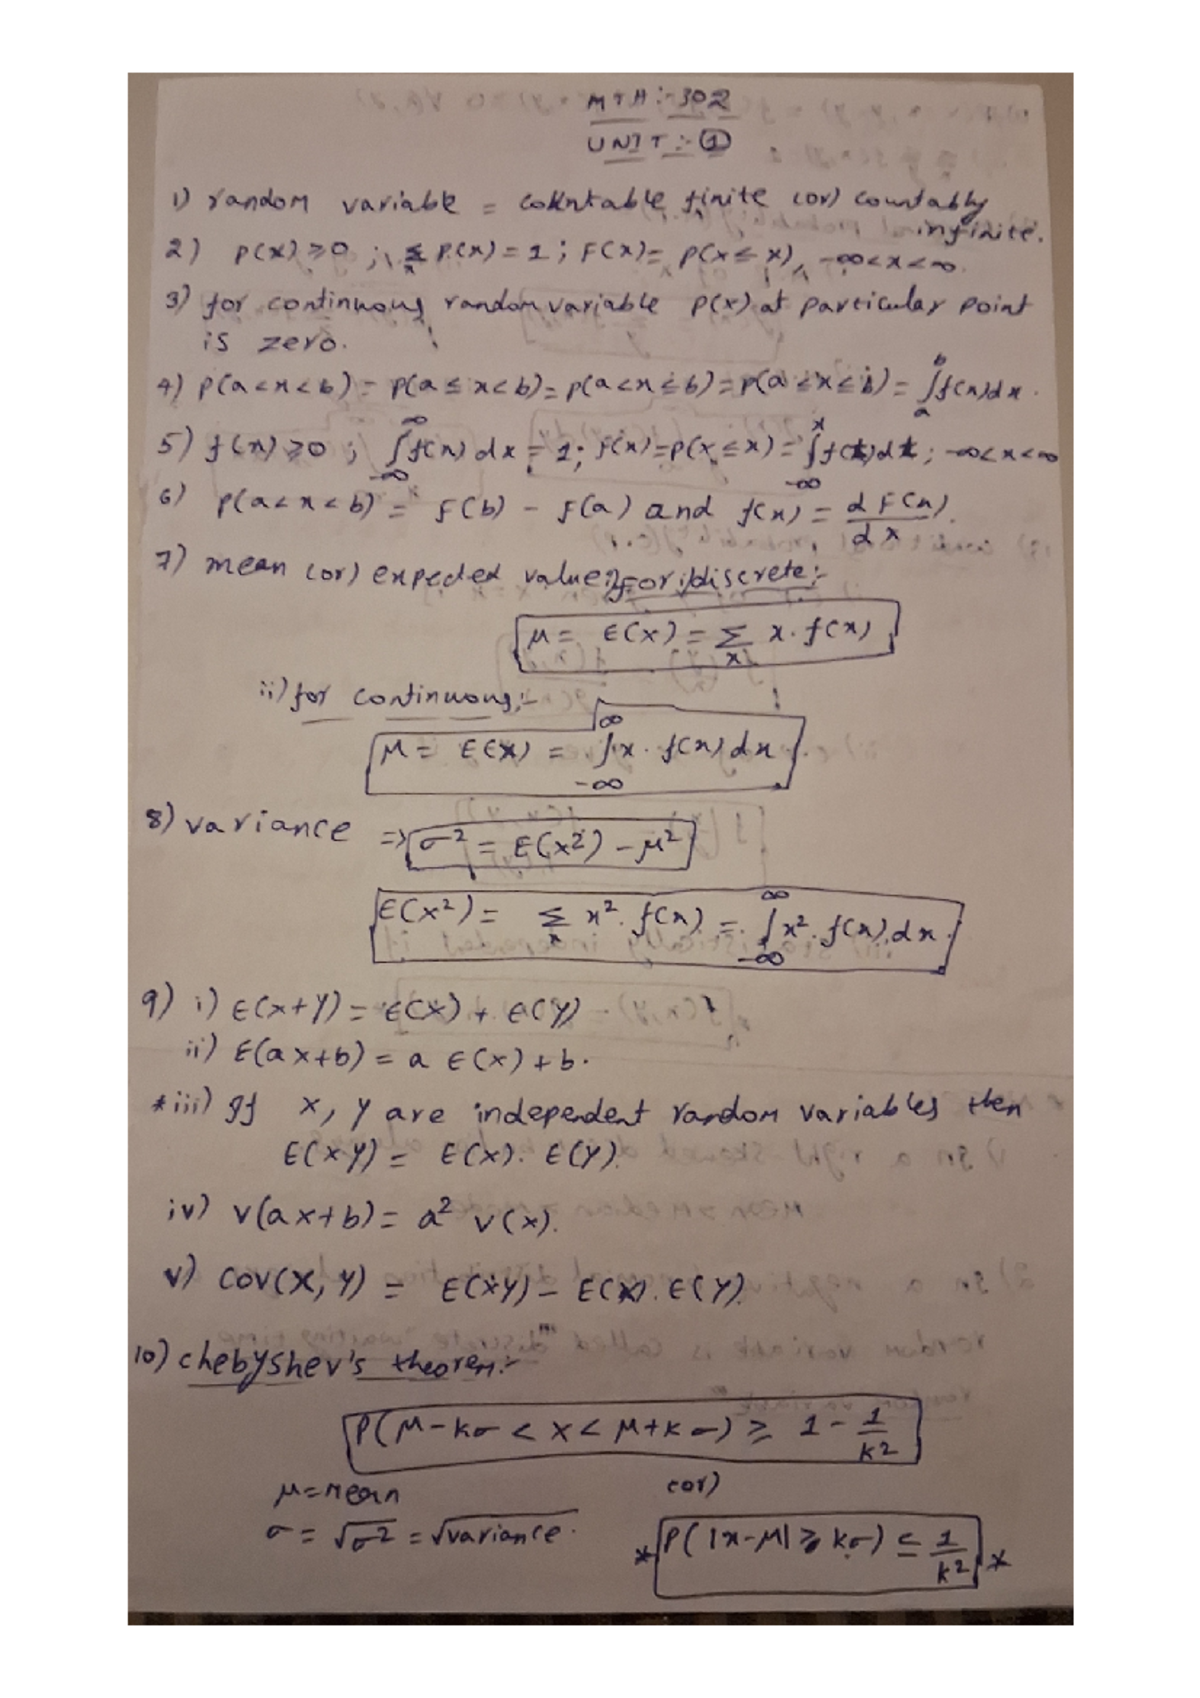 MTH :- 302
UNIT :- ①
1) random variable = countable finite (or) countably
infinite.
2) P(x) ≥ 0 ; Σx P(x) = 1 ; F(x) = P(X ≤ x), -∞ < x < ∞.
3) for continuous random variable P(x) at particular point
is zero.
4) P(a<x<b) = P(a≤x<b) = P(a<x≤b) = P(a≤x≤b) = ∫_a^b f(x)dx.
5) f(x) ≥ 0 ; ∫_-∞^∞ f(x) dx = 1; F(x) = P(X ≤ x) = ∫_-∞^x f(t)dt ; -∞<x<∞
6) P(a<x<b) = F(b) - F(a) and f(x) = dF(x)/dx.
7) mean (or) expected value:- i) for discrete:-
μ = E(X) = Σx x. f(x)
ii) for continuous:-
μ = E(X) = ∫_-∞^∞ x. f(x)dx
8) variance => σ² = E(X²) - μ²
E(X²) = Σx x². f(x) = ∫_-∞^∞ x². f(x).dx.
9) i) E(X+Y) = E(X) + E(Y)
ii) E(aX+b) = a E(X) + b.
*iii) If X, Y are independent random variables then
E(XY) = E(X). E(Y).
iv) V(aX+b) = a² V(X).
v) COV(X, Y) = E(XY) - E(X). E(Y).
10) chebyshev's theorem:-
P(μ-kσ < X < μ+kσ) ≥ 1 - 1/k²
μ = mean (or)
σ = √σ² = √variance. * P(|x-μ| ≥ kσ) ≤ 1/k² *